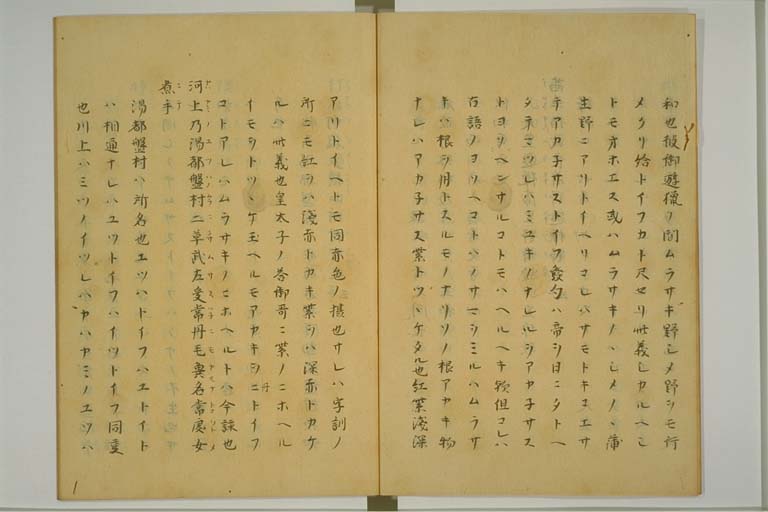 和也彼御遊猟ノ間ムラサキ野シメ野ヲモ行
メクリ給トイフカト尺セリ此義シカルヘシ
トモオホエス或ハムラサキノハシメノハ蒲
生野ニアリトイヘリコレハサモトキコエサ
テアカ子サストイフ発句ハ帝ヲ日ニタトヘ
タテマツレハミユキノナレルヲアカ子サス
トヨソヘンサルコトモハヘルヘキ歟但コレハ
百語ノヨソヘコトハノサマヲミルハムラサ
キハ根ヲ用トスルモノナリソノ根アカキ物
ナレハアカ子サス紫トツヽケタル也紅紫浅深
アリトイヘトモ同赤色ノ摂也サレハ字訓ノ
所ニモ紅ヲハ浅赤トカキ紫ヲハ深赤トカケ
ルハ此義也皇太子ノ答御哥ニ紫ノニホヘル
イモヲトツヽケ玉ヘルモアカキヲニトイフ
丹
コトアレハムラサキノニホヘルトハ今詠也
河上乃湯都盤村二草武左受常丹毛冀名常処女
煮手
湯都盤村ハ所名也ユツハトイフハユトイト
ハ相通ナレハユツトイフハイツトイフ同事
也川上ハミツノイツレハカハカミノユツハ